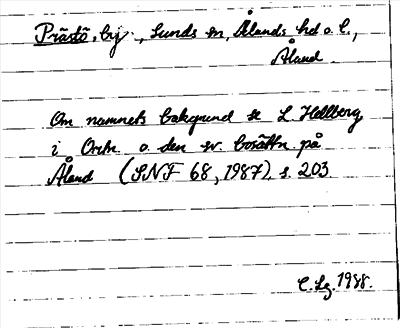 Prästö, by, Sunds sn, Ålands hd o. l.,
Åland
Om namnets bakgrund se L Hellberg
i Ortn. o. den sv. bosättn. på
Åland (SNF 68, 1987), s. 203
C. Lg. 1988.